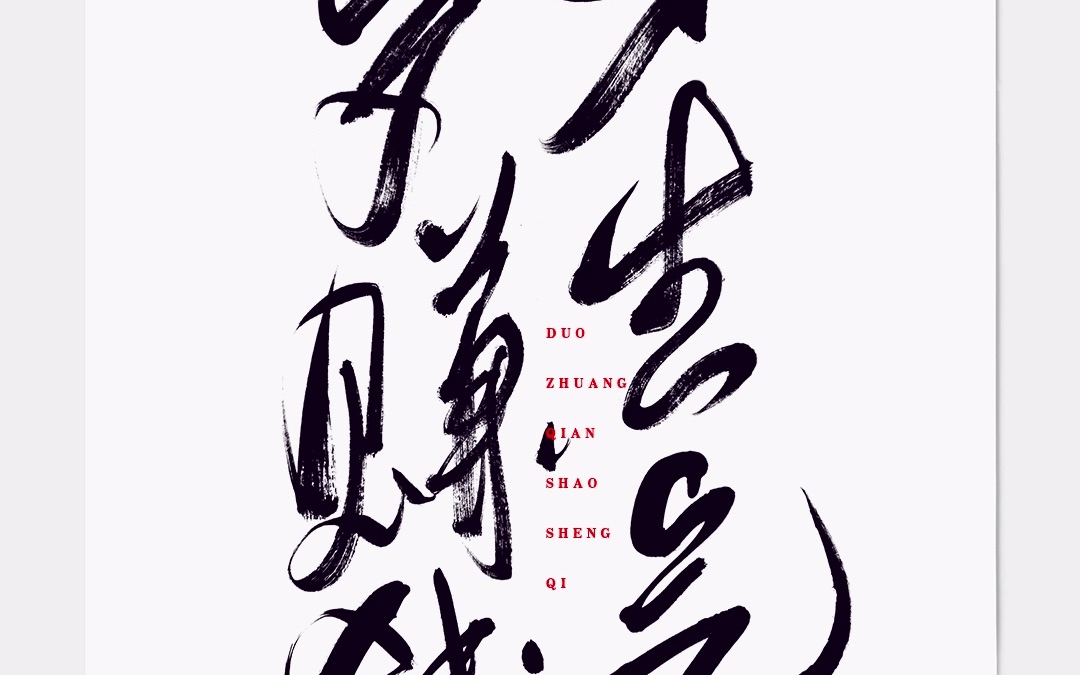 多赚钱
少生气
DUO
ZHUANG
QIAN
SHAO
SHENG
QI